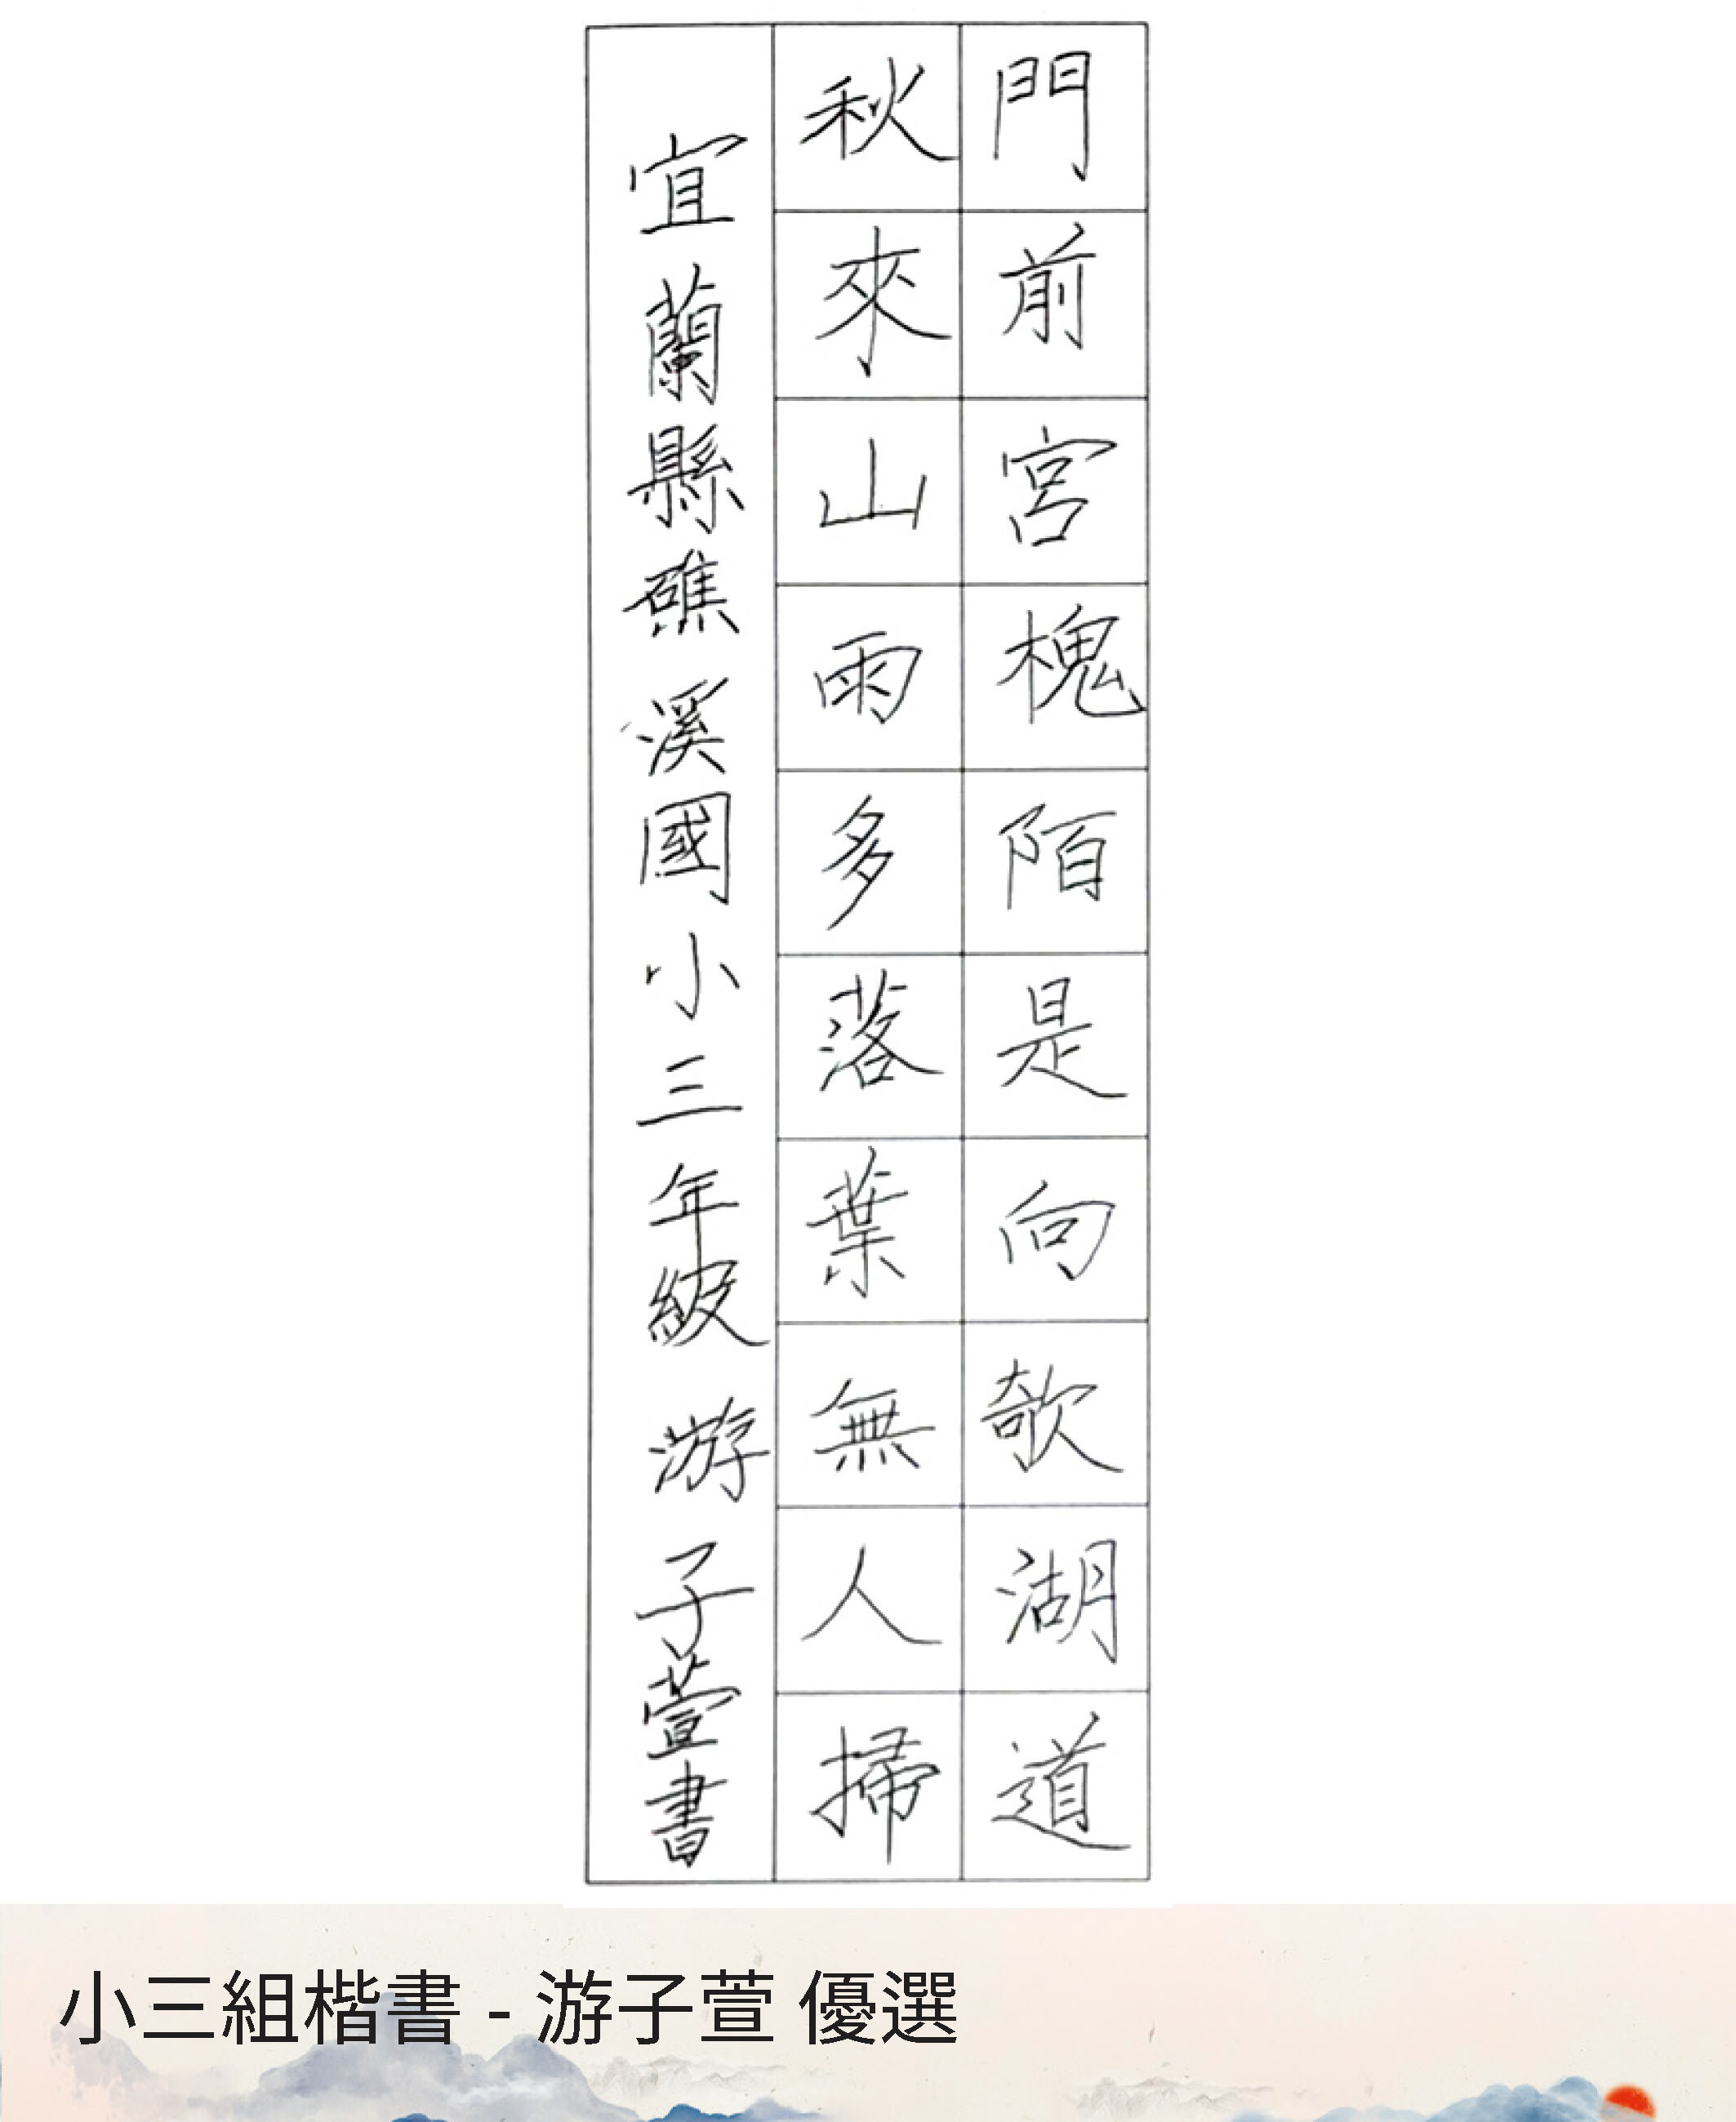 門前宮槐陌是向欹湖道
秋來山雨多落葉無人掃
宜蘭縣礁溪國小三年級游子萱書
小三組楷書 - 游子萱 優選